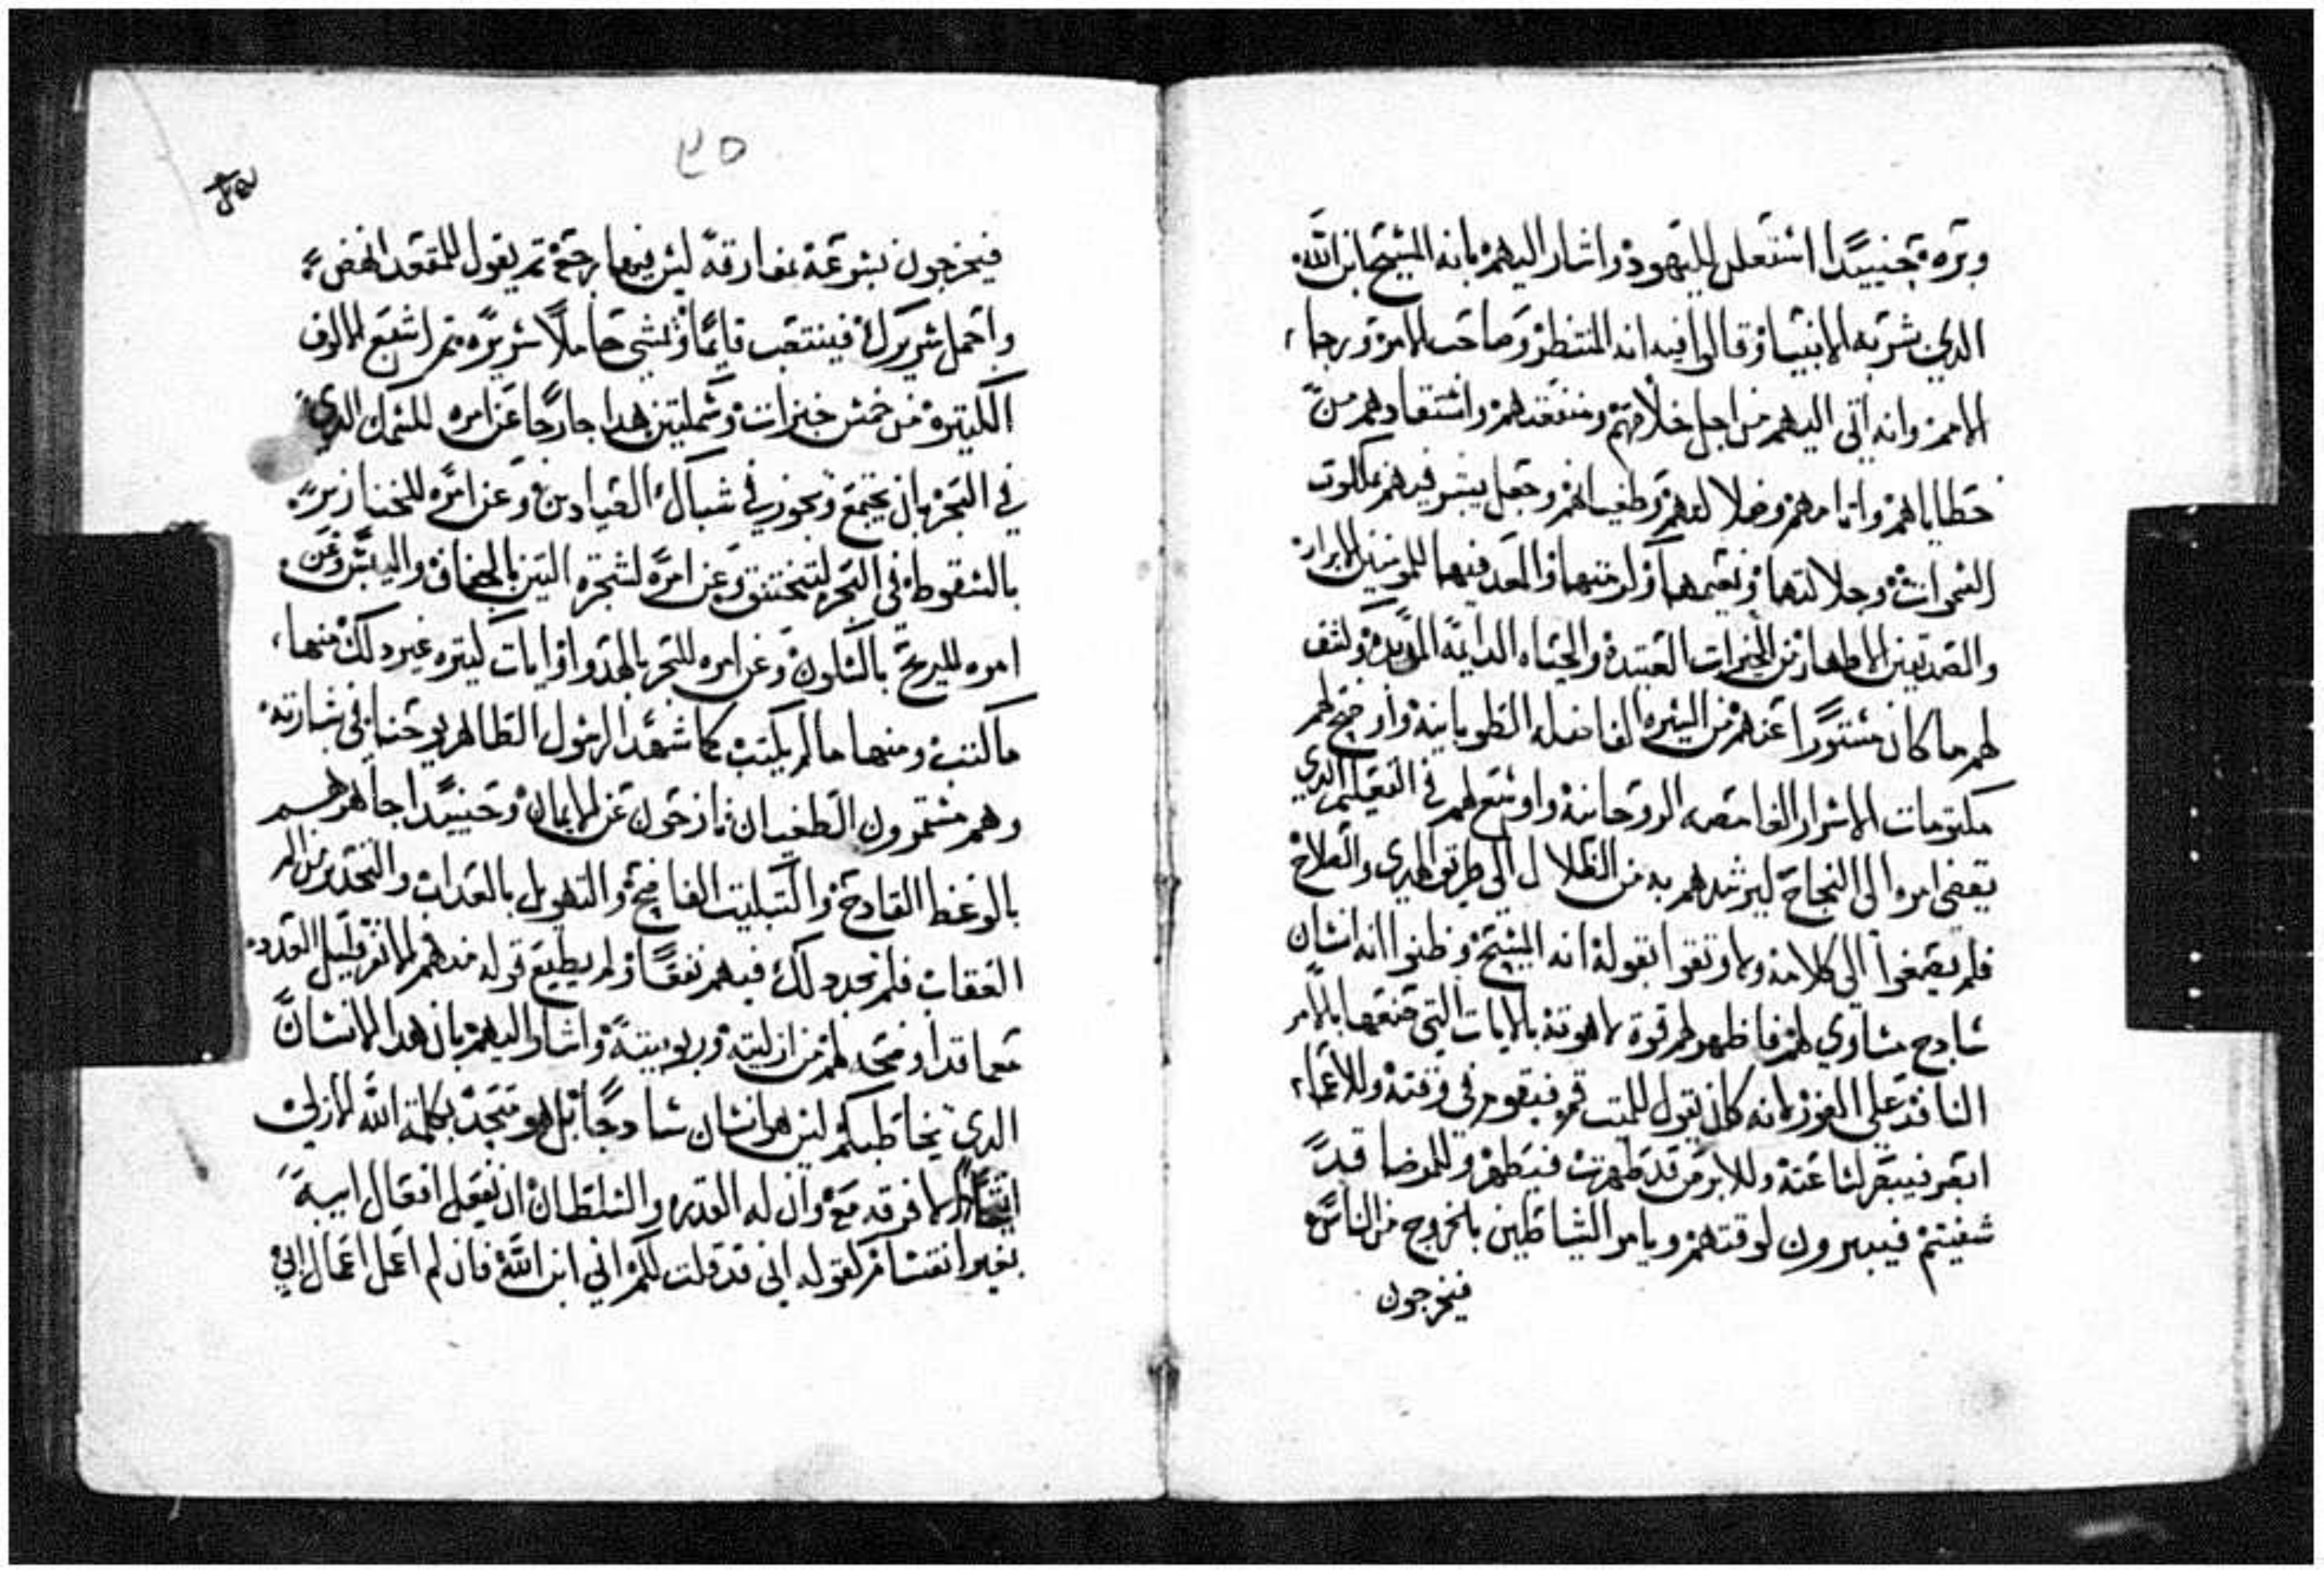 وبره وحينيدًا استعلن لليهود واشار اليهم بانه المسيح ابن الله
الدي بشر به الانبيا وقالوا فيه انه المنتظر وصاحب الامر ورجا
الامم وانه اتي اليهم من اجل خلاصهم ومنفعتهم واستنقادهم من
خطاياهم واتامهم وضلالتهم وطغيانهم وجعل يبشر فيهم بملكوت
السموات وجلالتها ونعيمها ولدتها والمعد فيها للمومنين الابرار
والصديقين الاطهار من الخيرات العتيدة والحياه الدايمه الموبده وكشف
لهم ما كان مستورًا عنهم من السيره الفاضله الطوبانيه واوضح لهم
مكتومات الاسرار الغامضه الروحانيه واوسع لهم في التعليم الدي
يفضي امره الي النجاح ليرشدهم به من الضلال الي طريق الهدي والصلاح
فلم يصغوا الي كلامه ولا وتقوا بقوله انه المسيح وظنوا انه انسان
سادج مساوي لهم فاظهر لهم قوة لاهوته بالايات التي صنعها بالامر
النافد علي الفور لانه كان يقول للميت قم فيقوم في وقته وللاعما
ابصر فيبصر لساعته وللابرص قد طهرت فيطهر وللمرضا قد
شفيتم فيبرون لوقتهم ويامر الشياطين بالخروج من الناس
فيخرجون
٣٥
فيخرجون بسرعة مفارقه ليس فيها رجعه تم يقول للمقعد انهض
واحمل سريرك فينتصب قايمًا ويمشي حاملًا سريره تم اشبع الالوف
الكتيره من خمس خبزات وسمكتين هدا خارجًا عن امره للسمك الدي
في البحر بان يجتمع ويجوز في شباك الصيادين وعن امره للخنازير
بالسقوط في البحر لتختنق وعن امره لشجره التين بالجفاف واليبس وعن
امره للريح بالسكون وعن امره للبحر بالهدو وايات كتيره غير دلك منها
ما كتب ومنها ما لم يكتب كما شهد الرسول الطاهر يوحنا في بشارته
وهم مستمرون الطغيان نازحون عن الايمان وحينيدًا جاهرهم
بالوعظ القادح والتبكيت الفاضح والتهويل بالعداب والتحدير من اليم
العقاب فلم يجد دلك فيهم نفعًا ولم يطيع قوله منهم الا نفر قليل العدد
بان هدا الانسان
الدي يخاطبكم ليس هو انسان سادجًا بل هو متحد بكلمة الله الازلي
اتحادًا لا فرقه معه وان له القدره والسلطان ان يفعل افعال ابيه
بغير انقسام كقوله اني قد قلت لكم اني ابن الله فان لم اعمل اعمال ابي